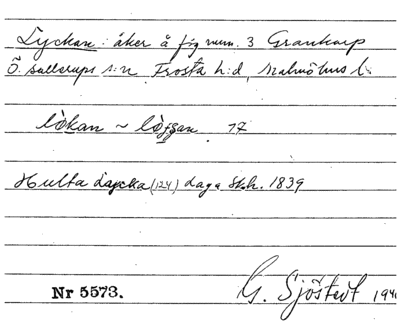 Lyckan: åker å fig num. 3 Grankarp
Ö. Sallerups s:n Frosta h:d, Malmöhus l.
lökan ~ löjjan 17
Hulta Laycka (124) daga Sk.h. 1839
Nr 5573. G. Sjöstedt 194